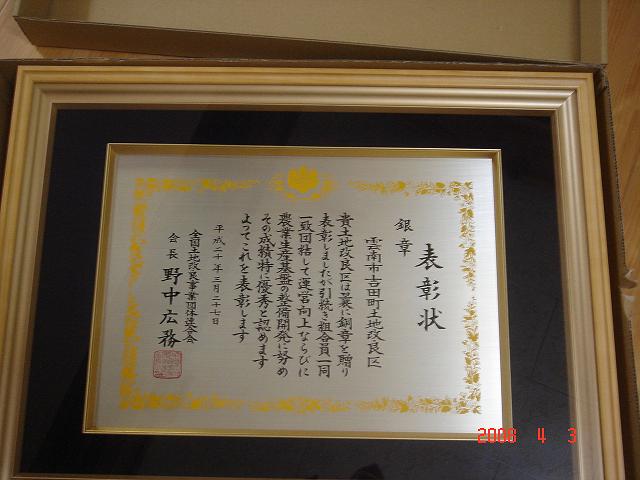 表彰状
銀章
雲南市吉田町土地改良区
貴土地改良区は曩に銅章を贈り
表彰しましたが引続き組合員一同
一致団結して運営向上ならびに
農業生産基盤の整備開発に努め
その成績特に優秀と認めます
よってこれを表彰します
平成二十年三月二十七日
全国土地改良事業団体連合会
会長 野中広務
2008 4 3